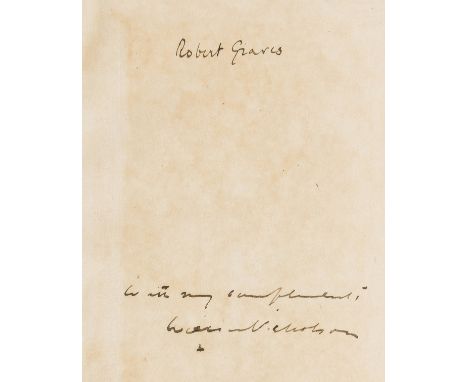 Robert Graves
With my compliments
William Nicholson